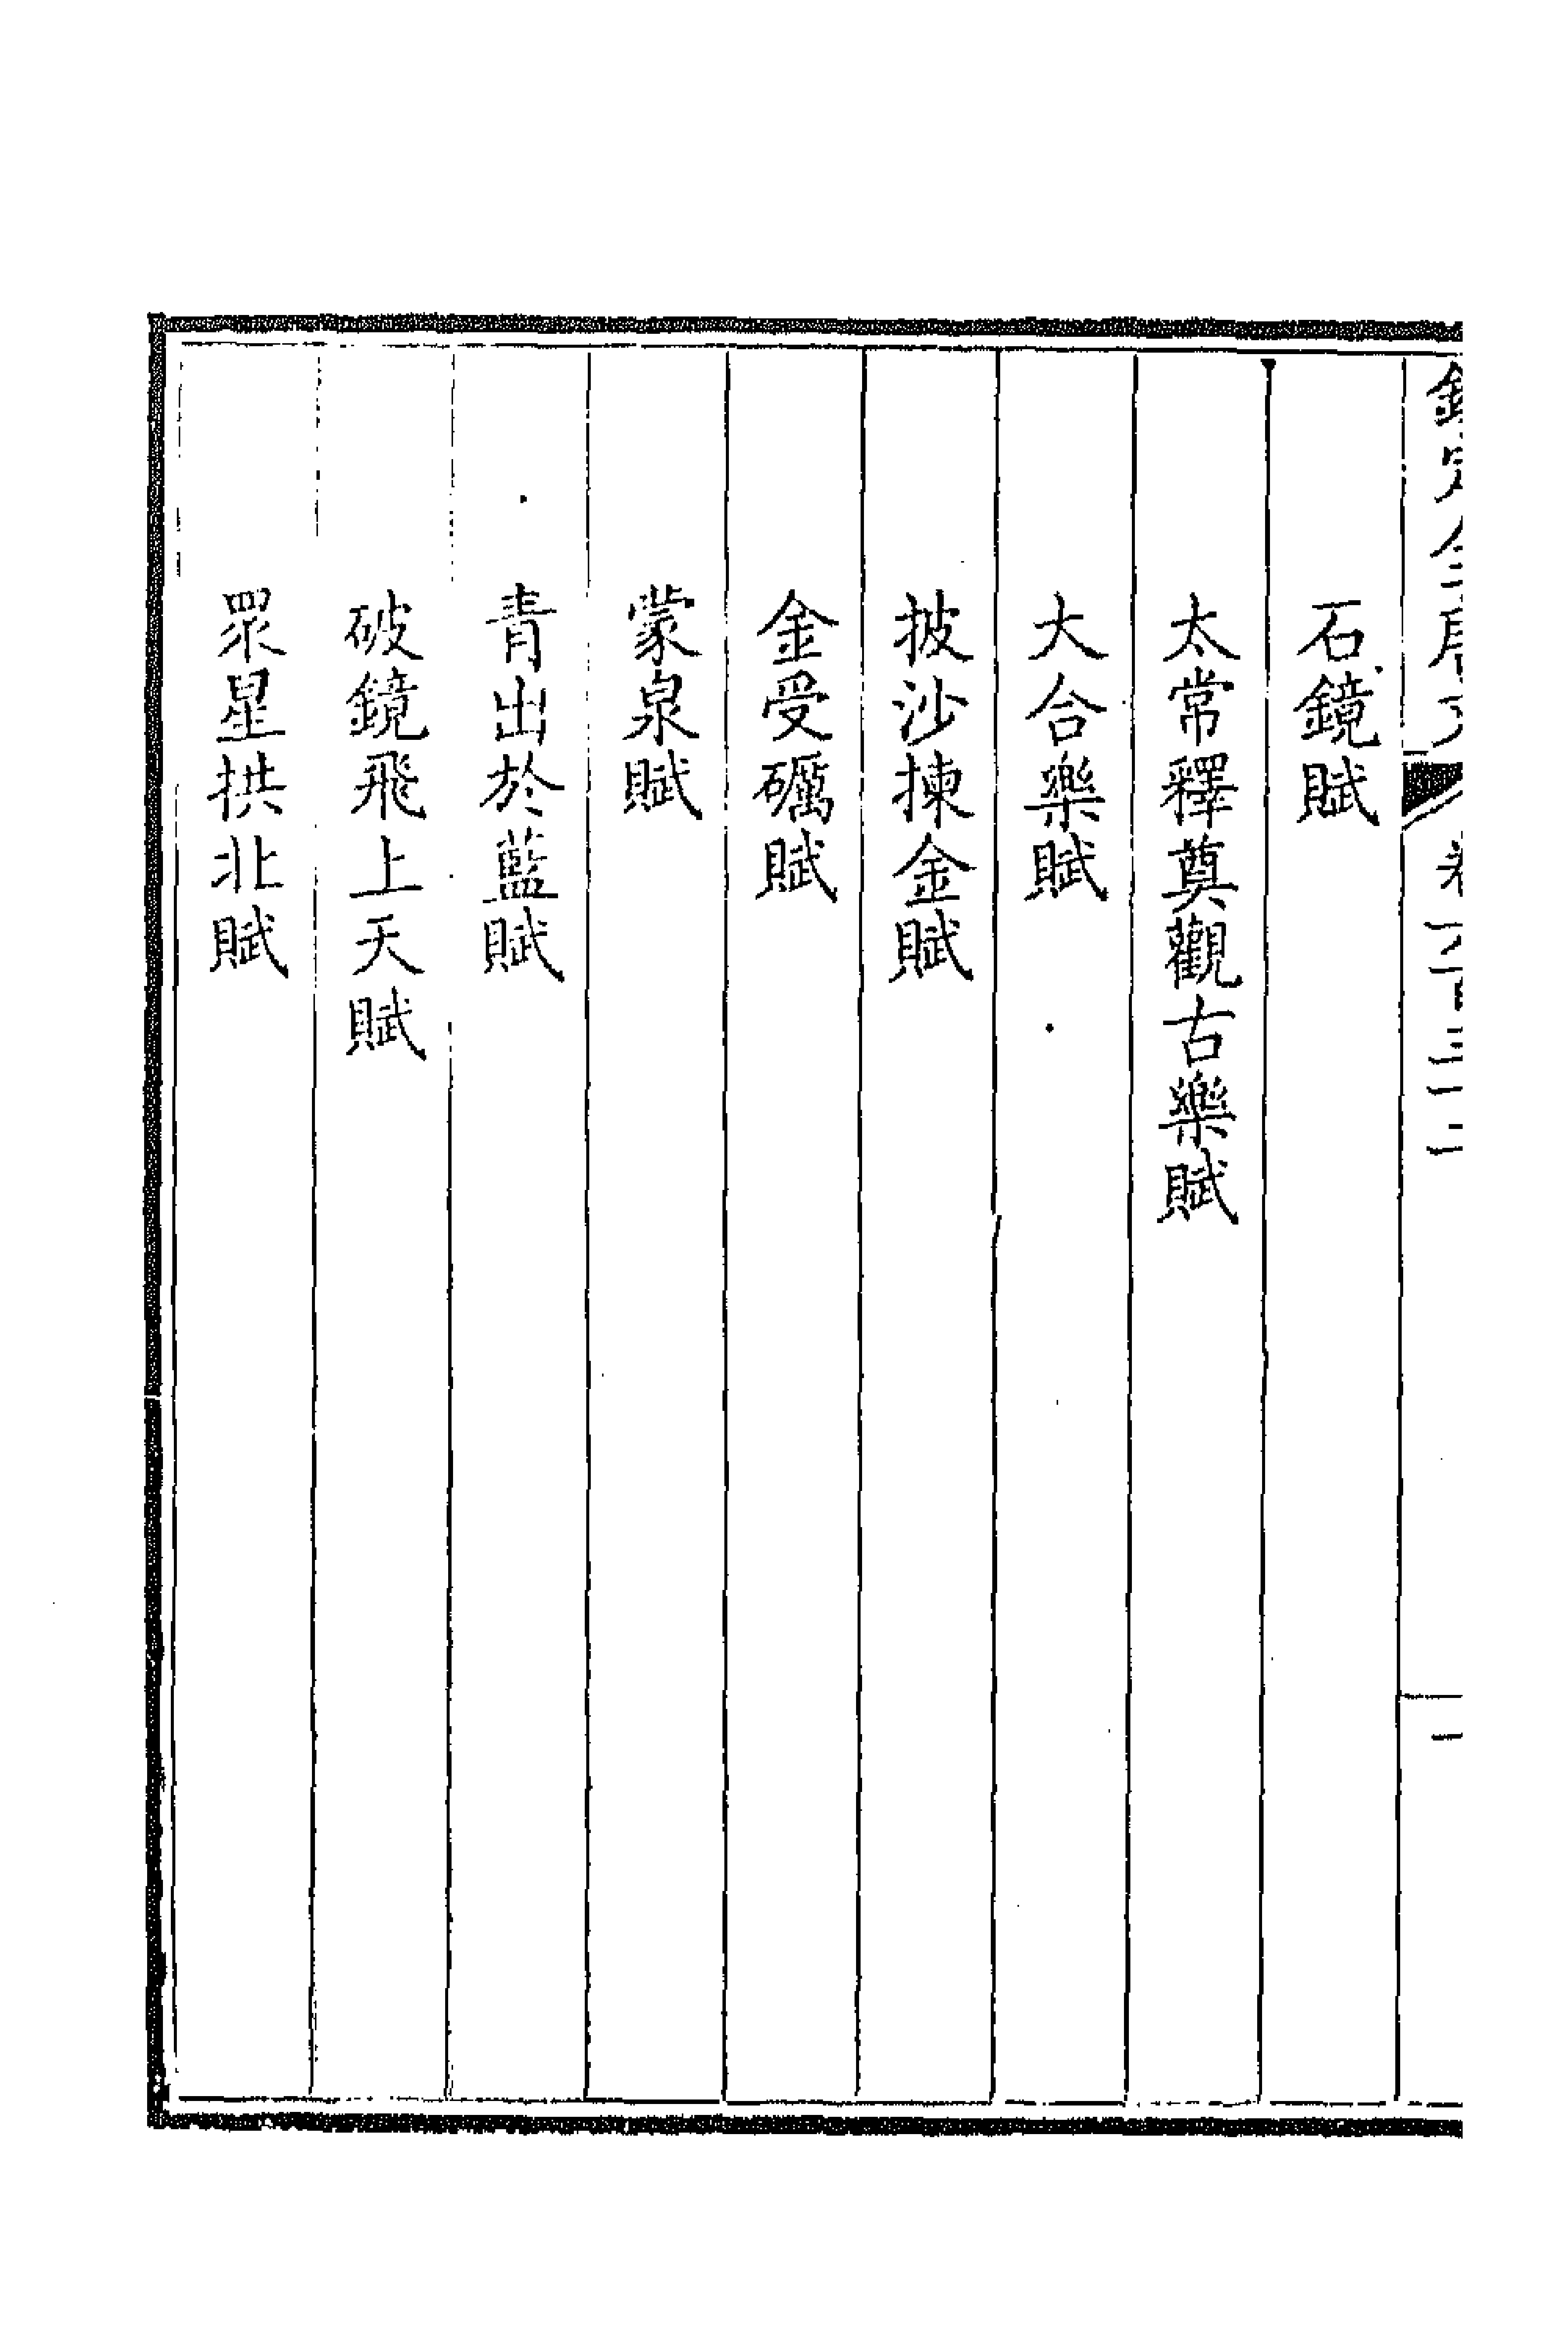 石鏡賦
太常釋奠觀古樂賦
大合樂賦
披沙揀金賦
金受礪賦
蒙泉賦
青出於藍賦
破鏡飛上天賦
眾星拱北賦